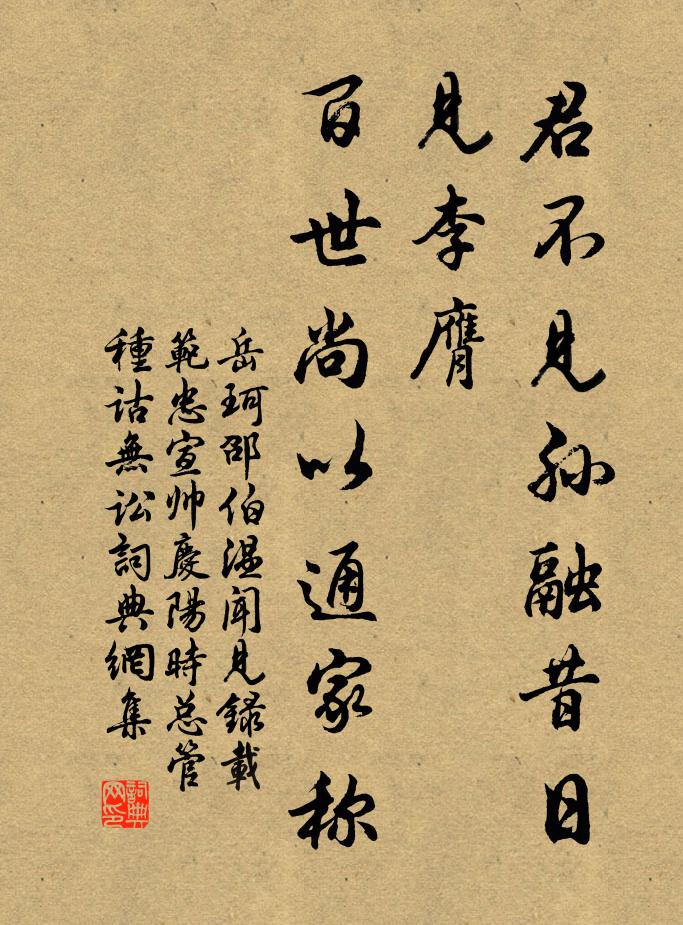 君不见孙融昔日
见李膺
百世尚以通家称
岳珂邵伯温闻见録載
範忠宣帅慶陽時总管
種诂無讼詞典網集
詞典
网印